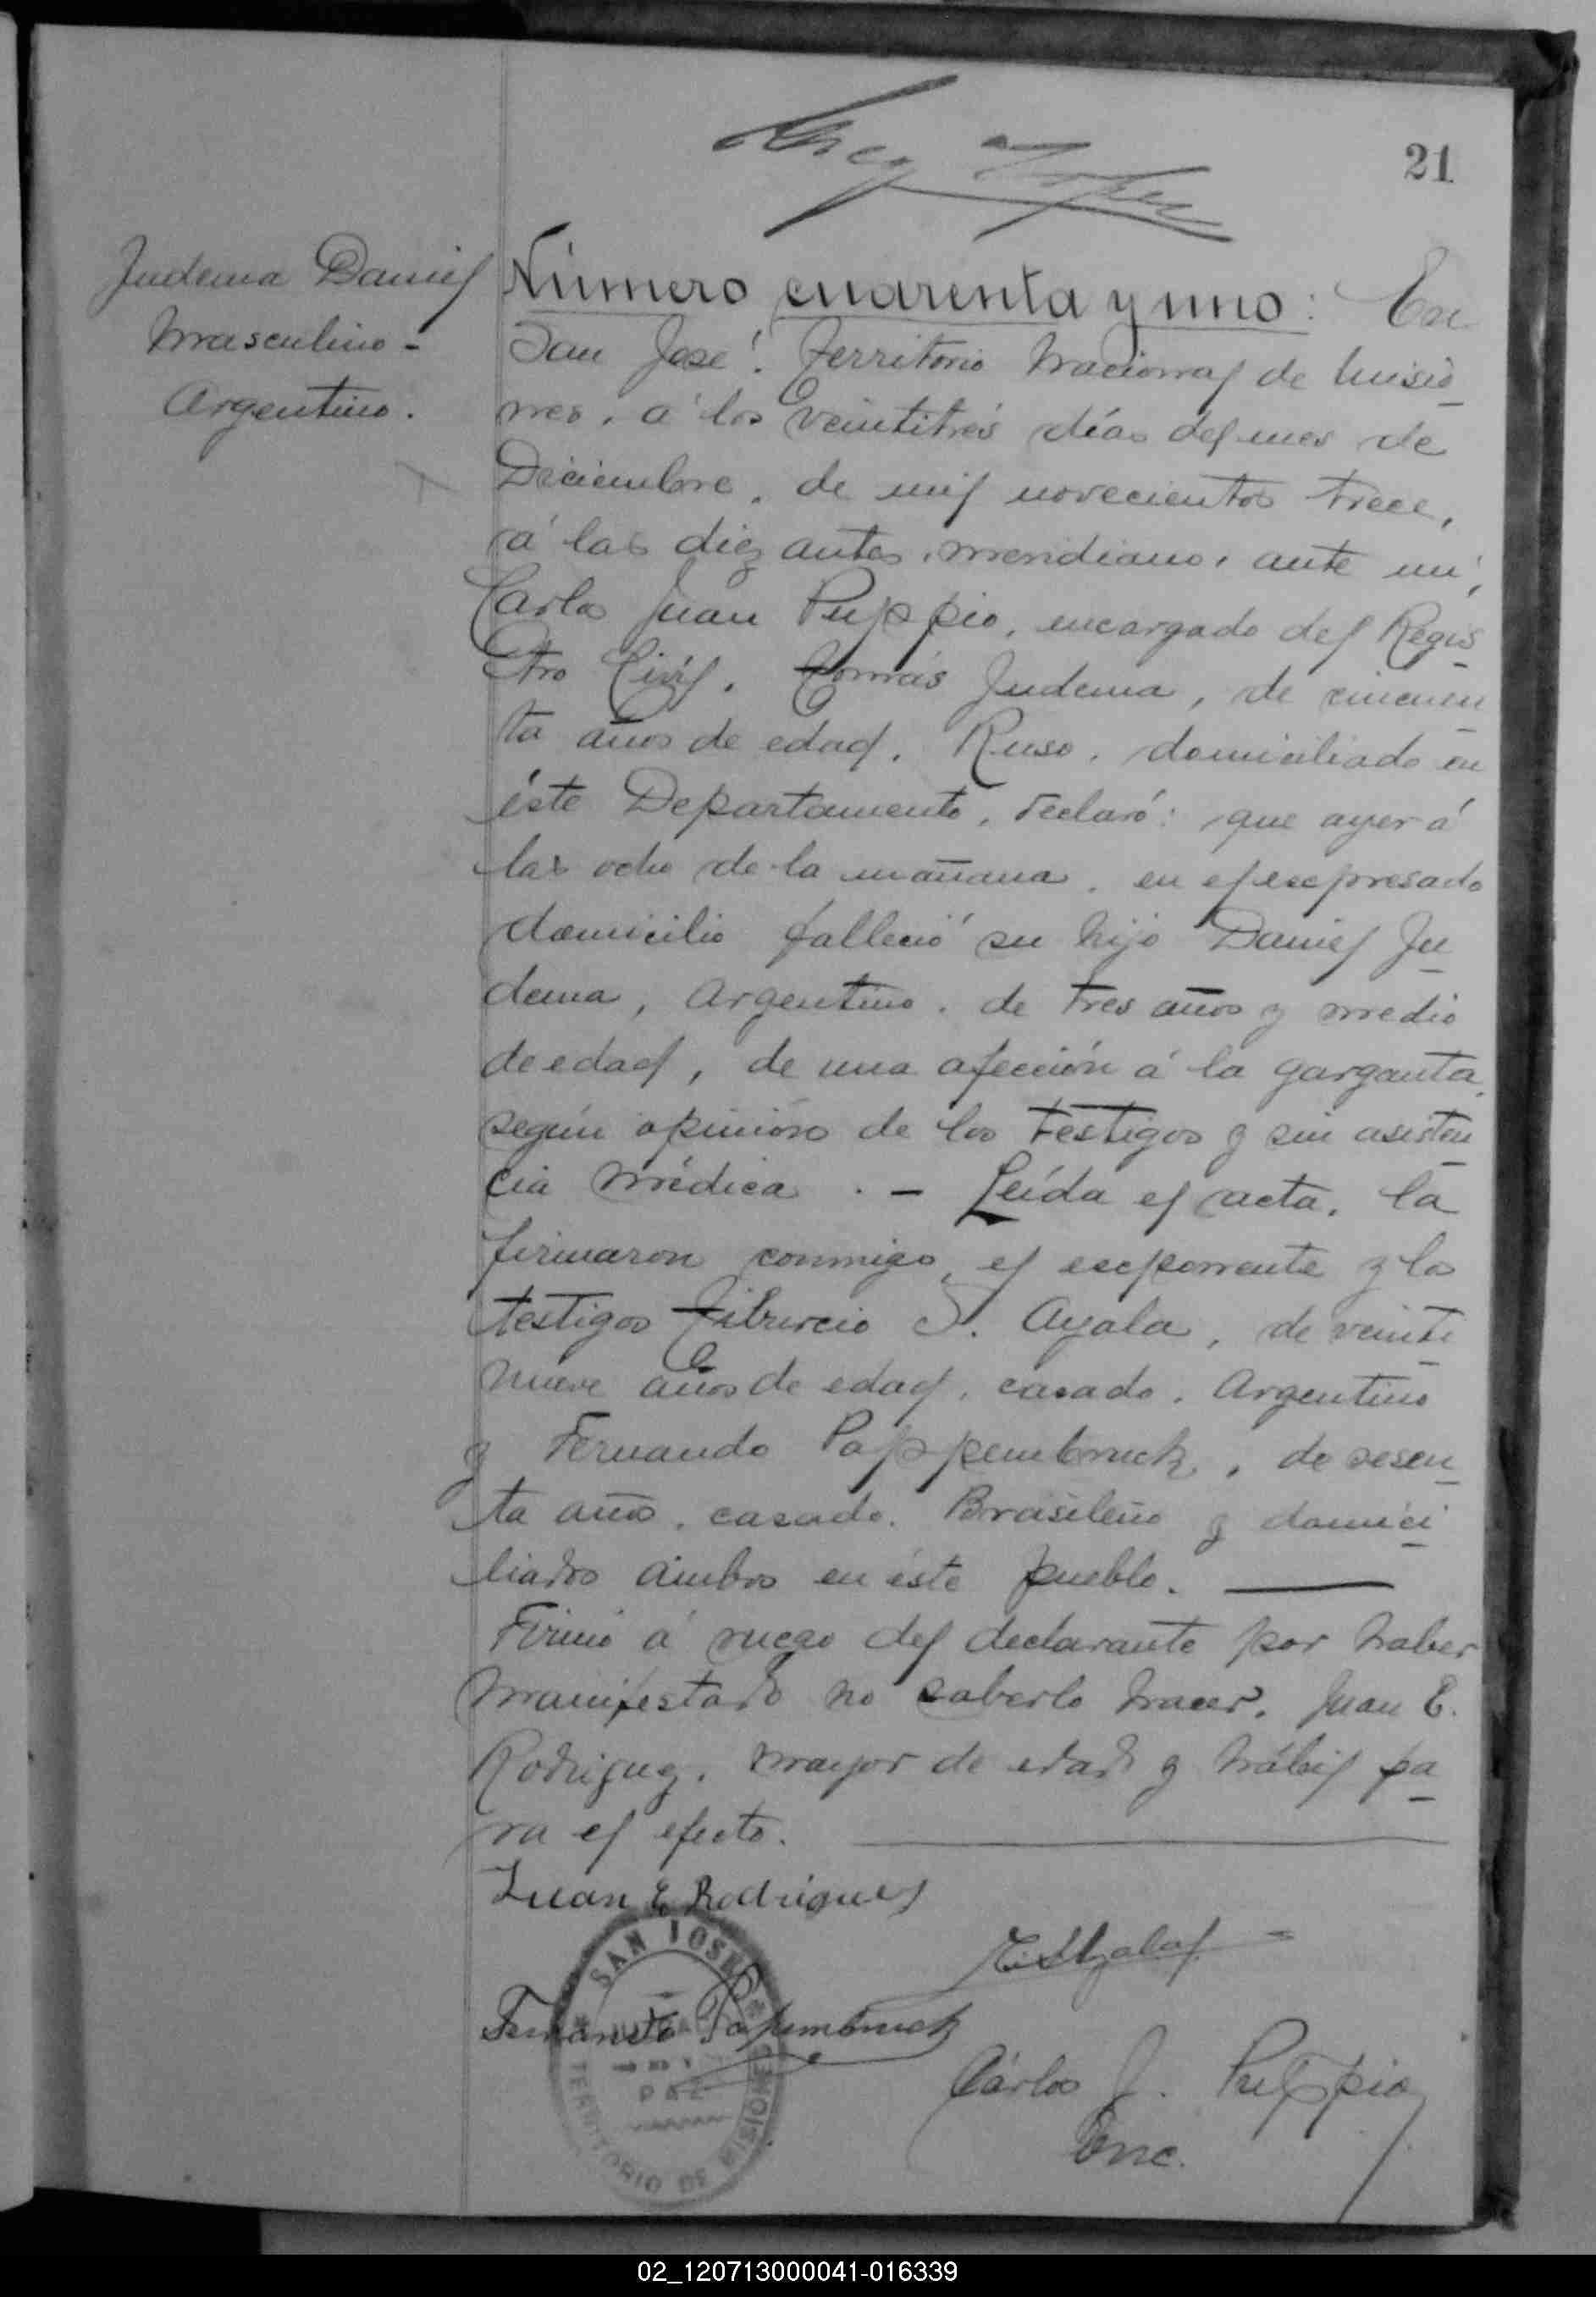 21
Judema Daniel
Masculino -
Argentino.
Número cuarenta y uno: En
San José. Territorio Nacional de Misio
nes, á los veintitrés días del mes de
Diciembre, de mil novecientos trece,
á las diez antes meridiano, ante mí,
Carlos Juan Puppio, encargado del Regis
tro Civil. Tomás Judema, de cincuen
ta años de edad, Ruso, domiciliado en
éste Departamento, declaró: que ayer á
las ocho de la mañana, en el expresado
domicilio falleció su hijo Daniel Ju
dema, Argentino, de tres años y medio
de edad, de una afección á la garganta,
según opinión de los testigos y sin asisten
cia médica. - Leída el acta, la
firmaron conmigo, el exponente y los
testigos Tiburcio S. Ayala, de veinti
nueve años de edad, casado, Argentino
y Fernando Pappembruck, de sesen
ta años, casado, Brasileño y domici
liados ámbos en éste pueblo.
Firmó á ruego del declarante por haber
manifestado no saberlo hacer, Juan E.
Rodriguez, mayor de edad y hábil pa
ra el efecto.
Juan E Rodriguez
SAN JOSE
Fernando Papembruck
PAZ
TERRITORIO DE MISIONES
Cárlos J. Puppio
Enc.
02_120713000041-016339